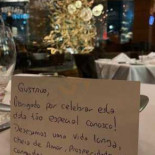 GUSTAVO,
Obrigado por celebrar esta
data tão especial conosco!
Desejamos uma vida longa,
cheia de Amor, Prosperidade